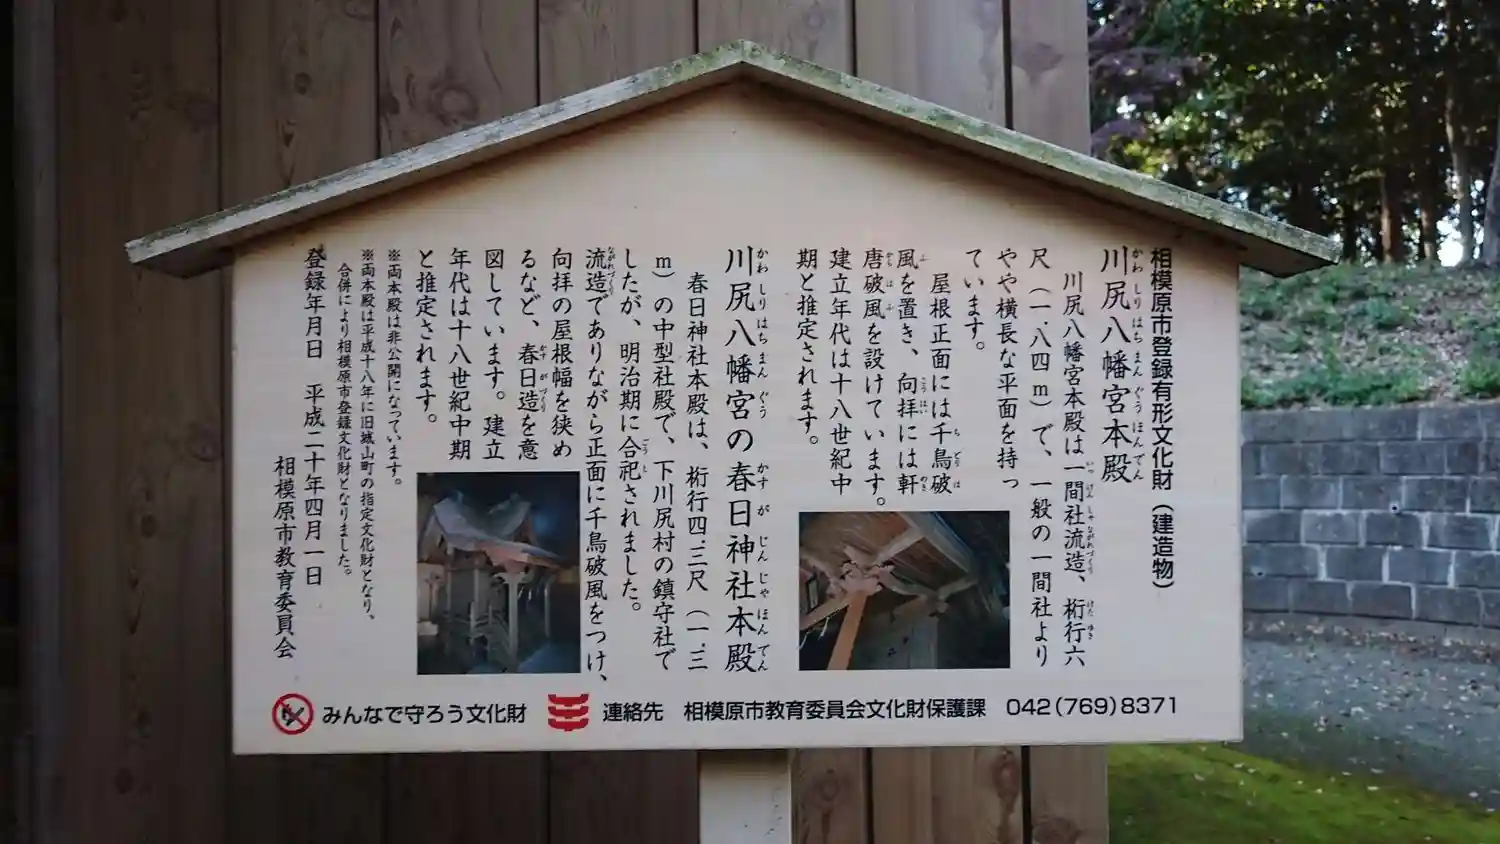 相模原市登録有形文化財（建造物）
川尻八幡宮本殿
かわしりはちまんぐうほんでん
川尻八幡宮本殿は一間社流造、桁行六
いっけんしゃながれづくり
けたゆき
尺（一.八四m）で、一般の一間社より
やや横長な平面を持っ
ています。
屋根正面には千鳥破
ちどりは
風を置き、向拝には軒
ふ
こうはい
のき
唐破風を設けています。
からはふ
建立年代は十八世紀中
期と推定されます。
川尻八幡宮の春日神社本殿
かわしりはちまんぐう
かすがじんじゃほんでん
春日神社本殿は、桁行四.三尺（一.三
m）の中型社殿で、下川尻村の鎮守社で
したが、明治期に合祀されました。
ごうし
流造でありながら正面に千鳥破風をつけ、
ながれづくり
向拝の屋根幅を狭め
るなど、春日造を意
かすがづくり
図しています。建立
年代は十八世紀中期
と推定されます。
※両本殿は非公開になっています。
※両本殿は平成十八年に旧城山町の指定文化財となり、
合併により相模原市登録文化財となりました。
登録年月日　平成二十年四月一日
相模原市教育委員会
みんなで守ろう文化財
連絡先　相模原市教育委員会文化財保護課　042(769)8371